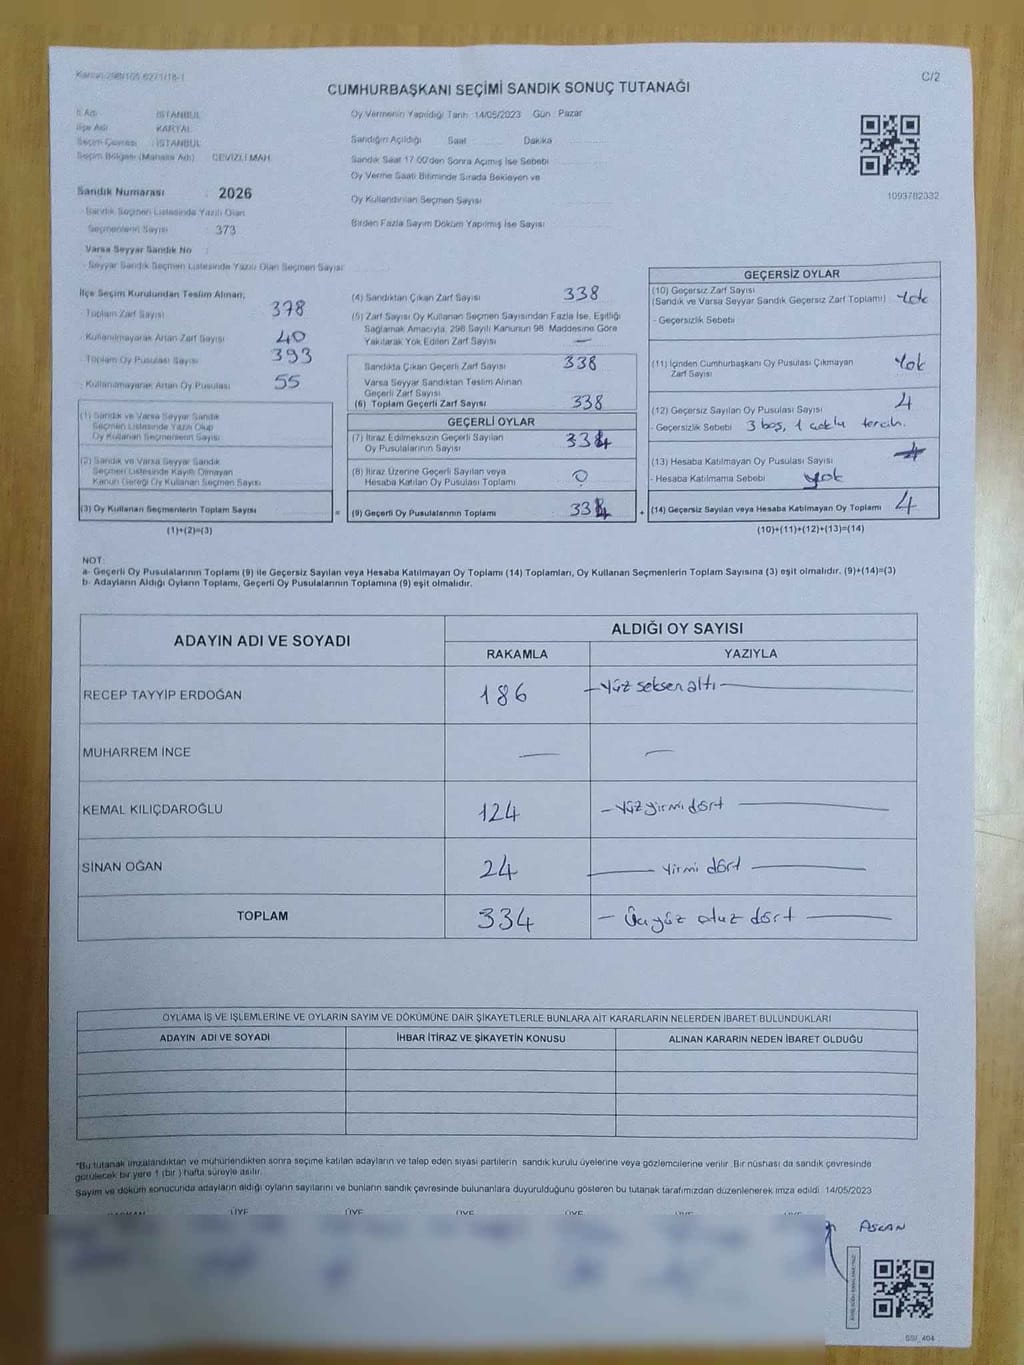 C/2
CUMHURBAŞKANI SEÇİMİ SANDIK SONUÇ TUTANAĞI
İl Adı : İSTANBUL
İlçe Adı : KARTAL
Seçim Çevresi : İSTANBUL
Seçim Bölgesi (Mahalle Adı) : CEVİZLİ MAH.
Sandık Numarası : 2026
- Sandık Seçmen Listesinde Yazılı Olan
Seçmenlerin Sayısı : 373
Varsa Seyyar Sandık No :
- Seyyar Sandık Seçmen Listesinde Yazılı Olan Seçmen Sayısı
Oy Vermenin Yapıldığı Tarih :14/05/2023 Gün : Pazar
Sandığın Açıldığı Saat Dakika
Sandık Saat 17.00'den Sonra Açılmış İse Sebebi
Oy Verme Saati Bitiminde Sırada Bekleyen ve
Oy Kullandırılan Seçmen Sayısı
Birden Fazla Sayım Döküm Yapılmış İse Sayısı
1093782332
İlçe Seçim Kurulundan Teslim Alınan;
Toplam Zarf Sayısı : 378
- Kullanılmayarak Artan Zarf Sayısı : 40
- Toplam Oy Pusulası Sayısı : 393
- Kullanılmayarak Artan Oy Pusulası : 55
(1) Sandık ve Varsa Seyyar Sandık
Seçmen Listesinde Yazılı Olup
Oy Kullanan Seçmenlerin Sayısı
(2) Sandık ve Varsa Seyyar Sandık
Seçmen Listesinde Kayıtlı Olmayan
Kanun Gereği Oy Kullanan Seçmen Sayısı
(3) Oy Kullanan Seçmenlerin Toplam Sayısı
(1)+(2)=(3)
(4) Sandıktan Çıkan Zarf Sayısı 338
(5) Zarf Sayısı Oy Kullanan Seçmen Sayısından Fazla İse, Eşitliği
Sağlamak Amacıyla, 298 Sayılı Kanunun 98. Maddesine Göre
Yakılarak Yok Edilen Zarf Sayısı —
Sandıkta Çıkan Geçerli Zarf Sayısı 338
Varsa Seyyar Sandıktan Teslim Alınan
Geçerli Zarf Sayısı
(6) Toplam Geçerli Zarf Sayısı 338
GEÇERLİ OYLAR
(7) İtiraz Edilmeksizin Geçerli Sayılan
Oy Pusulalarının Sayısı 334
(8) İtiraz Üzerine Geçerli Sayılan veya
Hesaba Katılan Oy Pusulası Toplamı 0
= (9) Geçerli Oy Pusulalarının Toplamı 334 +
GEÇERSİZ OYLAR
(10) Geçersiz Zarf Sayısı
(Sandık ve Varsa Seyyar Sandık Geçersiz Zarf Toplamı) Yok
- Geçersizlik Sebebi
(11) İçinden Cumhurbaşkanı Oy Pusulası Çıkmayan
Zarf Sayısı Yok
(12) Geçersiz Sayılan Oy Pusulası Sayısı 4
- Geçersizlik Sebebi 3 boş, 1 çoklu tercih.
(13) Hesaba Katılmayan Oy Pusulası Sayısı
- Hesaba Katılmama Sebebi yok
(14) Geçersiz Sayılan veya Hesaba Katılmayan Oy Toplamı 4
(10)+(11)+(12)+(13)=(14)
NOT:
a- Geçerli Oy Pusulalarının Toplamı (9) ile Geçersiz Sayılan veya Hesaba Katılmayan Oy Toplamı (14) Toplamları, Oy Kullanan Seçmenlerin Toplam Sayısına (3) eşit olmalıdır. (9)+(14)=(3)
b- Adayların Aldığı Oyların Toplamı, Geçerli Oy Pusulalarının Toplamına (9) eşit olmalıdır.
ADAYIN ADI VE SOYADI ALDIĞI OY SAYISI
RAKAMLA YAZIYLA
RECEP TAYYİP ERDOĞAN 186 — Yüz seksen altı —
MUHARREM İNCE — —
KEMAL KILIÇDAROĞLU 124 — Yüz yirmi dört —
SİNAN OĞAN 24 — Yirmi dört —
TOPLAM 334 — Üç yüz otuz dört —
OYLAMA İŞ VE İŞLEMLERİNE VE OYLARIN SAYIM VE DÖKÜMÜNE DAİR ŞİKAYETLERLE BUNLARA AİT KARARLARIN NELERDEN İBARET BULUNDUKLARI
ADAYIN ADI VE SOYADI İHBAR İTİRAZ VE ŞİKAYETİN KONUSU ALINAN KARARIN NEDEN İBARET OLDUĞU
*Bu tutanak imzalandıktan ve mühürlendikten sonra seçime katılan adayların ve talep eden siyasi partilerin sandık kurulu üyelerine veya gözlemcilerine verilir. Bir nüshası da sandık çevresinde
görülecek bir yere 1 (bir ) hafta süreyle asılır.
Sayım ve döküm sonucunda adayların aldığı oyların sayılarını ve bunların sandık çevresinde bulunanlara duyurulduğunu gösteren bu tutanak tarafımızdan düzenlenerek imza edildi. 14/05/2023
BAŞKAN ÜYE ÜYE ÜYE ÜYE ÜYE ÜYE
ASLAN